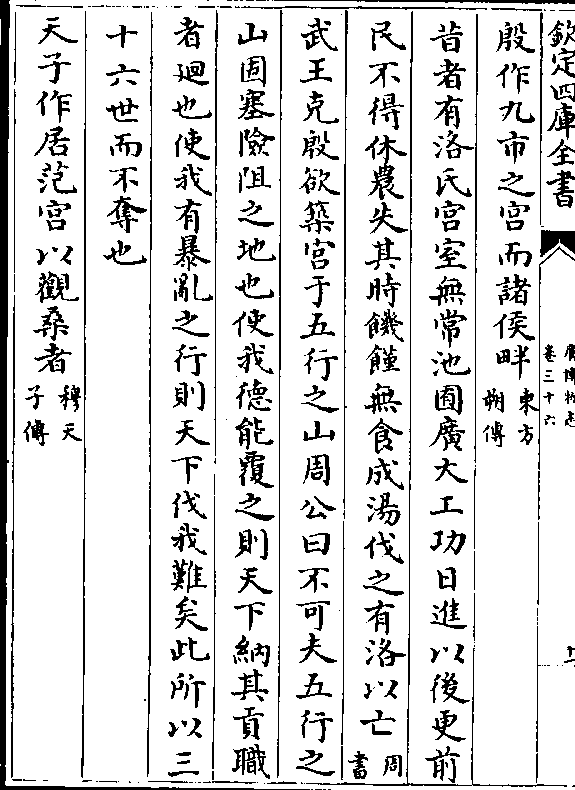 欽定四庫全書
廣博物志
卷三十六
殷作九市之宫而諸侯畔東方朔傳
昔者有洛氏宫室無常池囿廣大工功日進以後更前
民不得休農失其時饑饉無食成湯伐之有洛以亡周書
武王克殷欲築宫于五行之山周公曰不可夫五行之
山固塞險阻之地也使我德能覆之則天下納其貢職
者迴也使我有暴亂之行則天下伐我難矣此所以三
十六世而不奪也
天子作居范宫以觀桑者穆天子傳